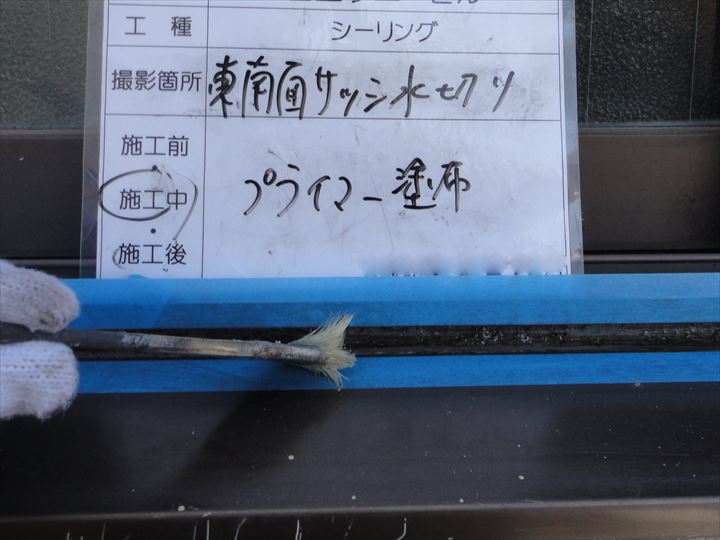 工種 シーリング
撮影箇所 東南面サッシ水切り
施工前
・
施工中 プライマー塗布
・
施工後